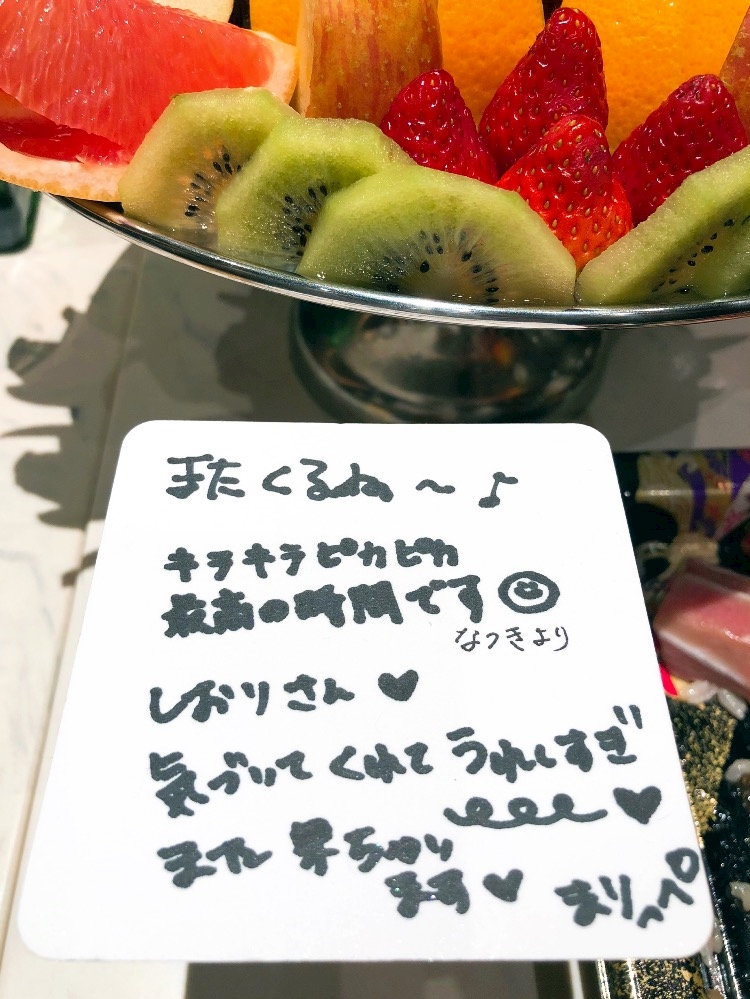 またくるね〜♪
キラキラピカピカ
最高の時間です
なつきより
しおりさん♥
気づいてくれてうれしすぎ
♥
また昇ちゃり
ます♥ まりっぺ